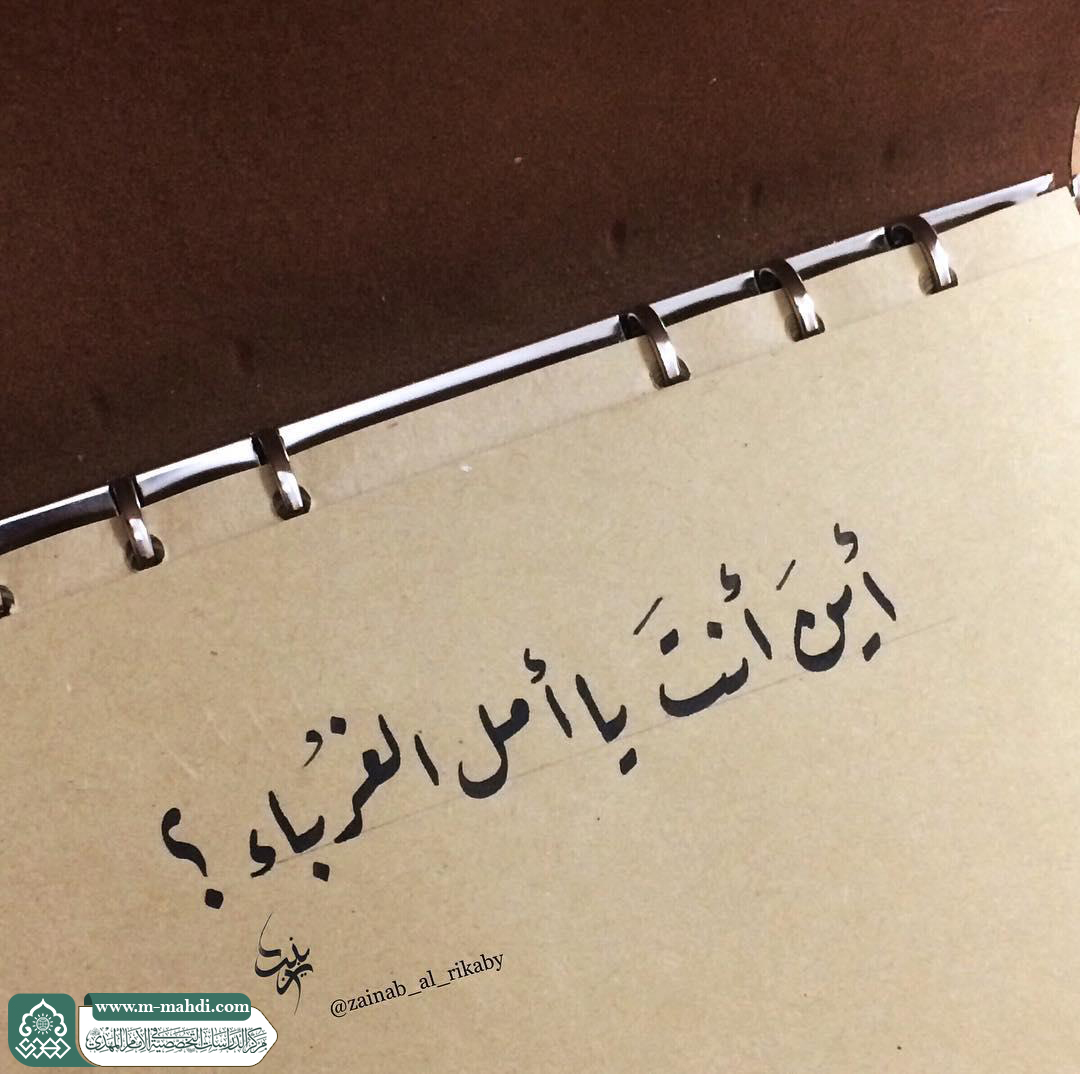 أينَ أنتَ يا أمل الغُرباء ؟
زينب
@zainab_al_rikaby
www.m-mahdi.com
مركز الدراسات التخصصية في الإمام المهدي